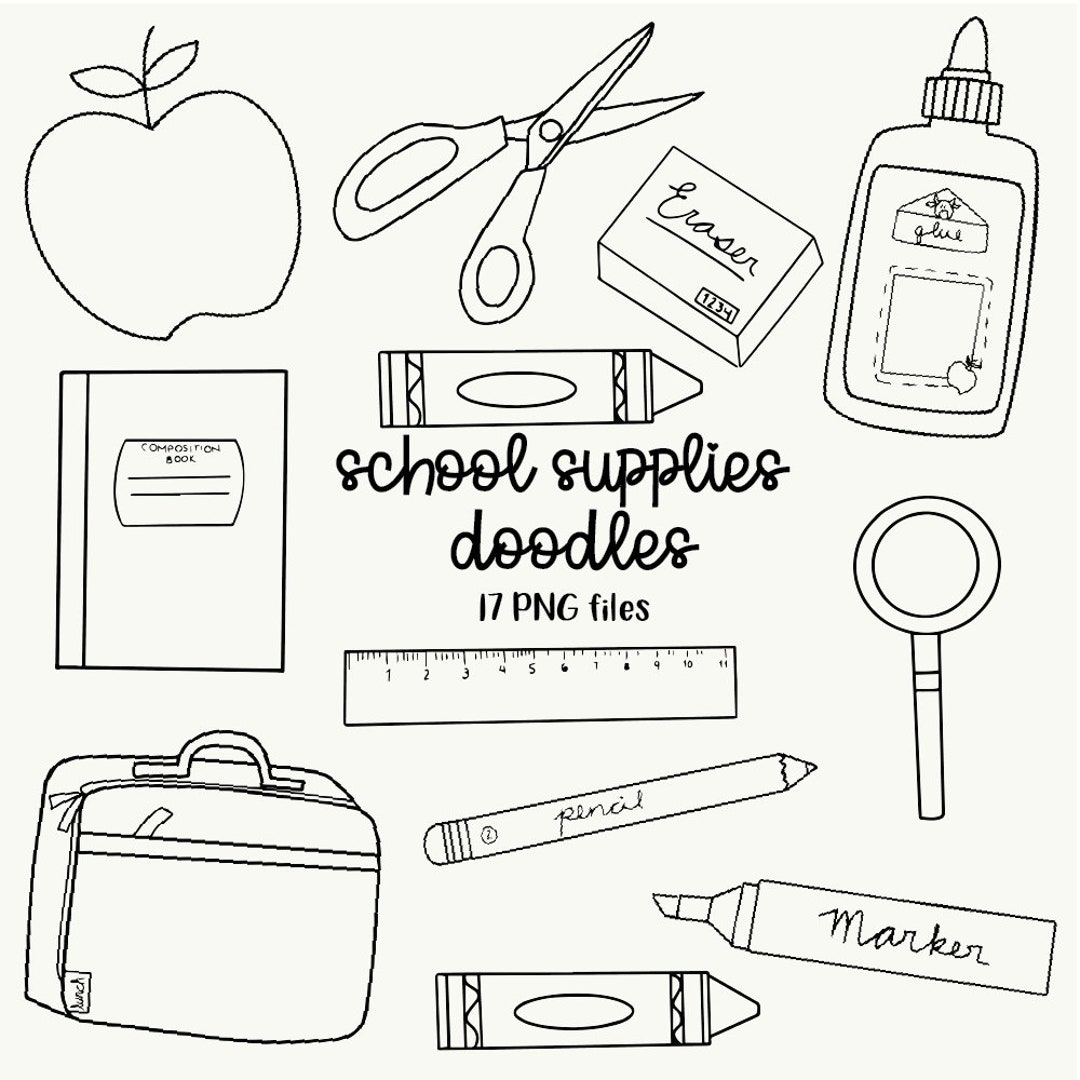 Eraser
1234
glue
COMPOSITION
BOOK
school supplies
doodles
17 PNG files
1 2 3 4 5 6 7 8 9 10 11
2 pencil
Marker
lunch